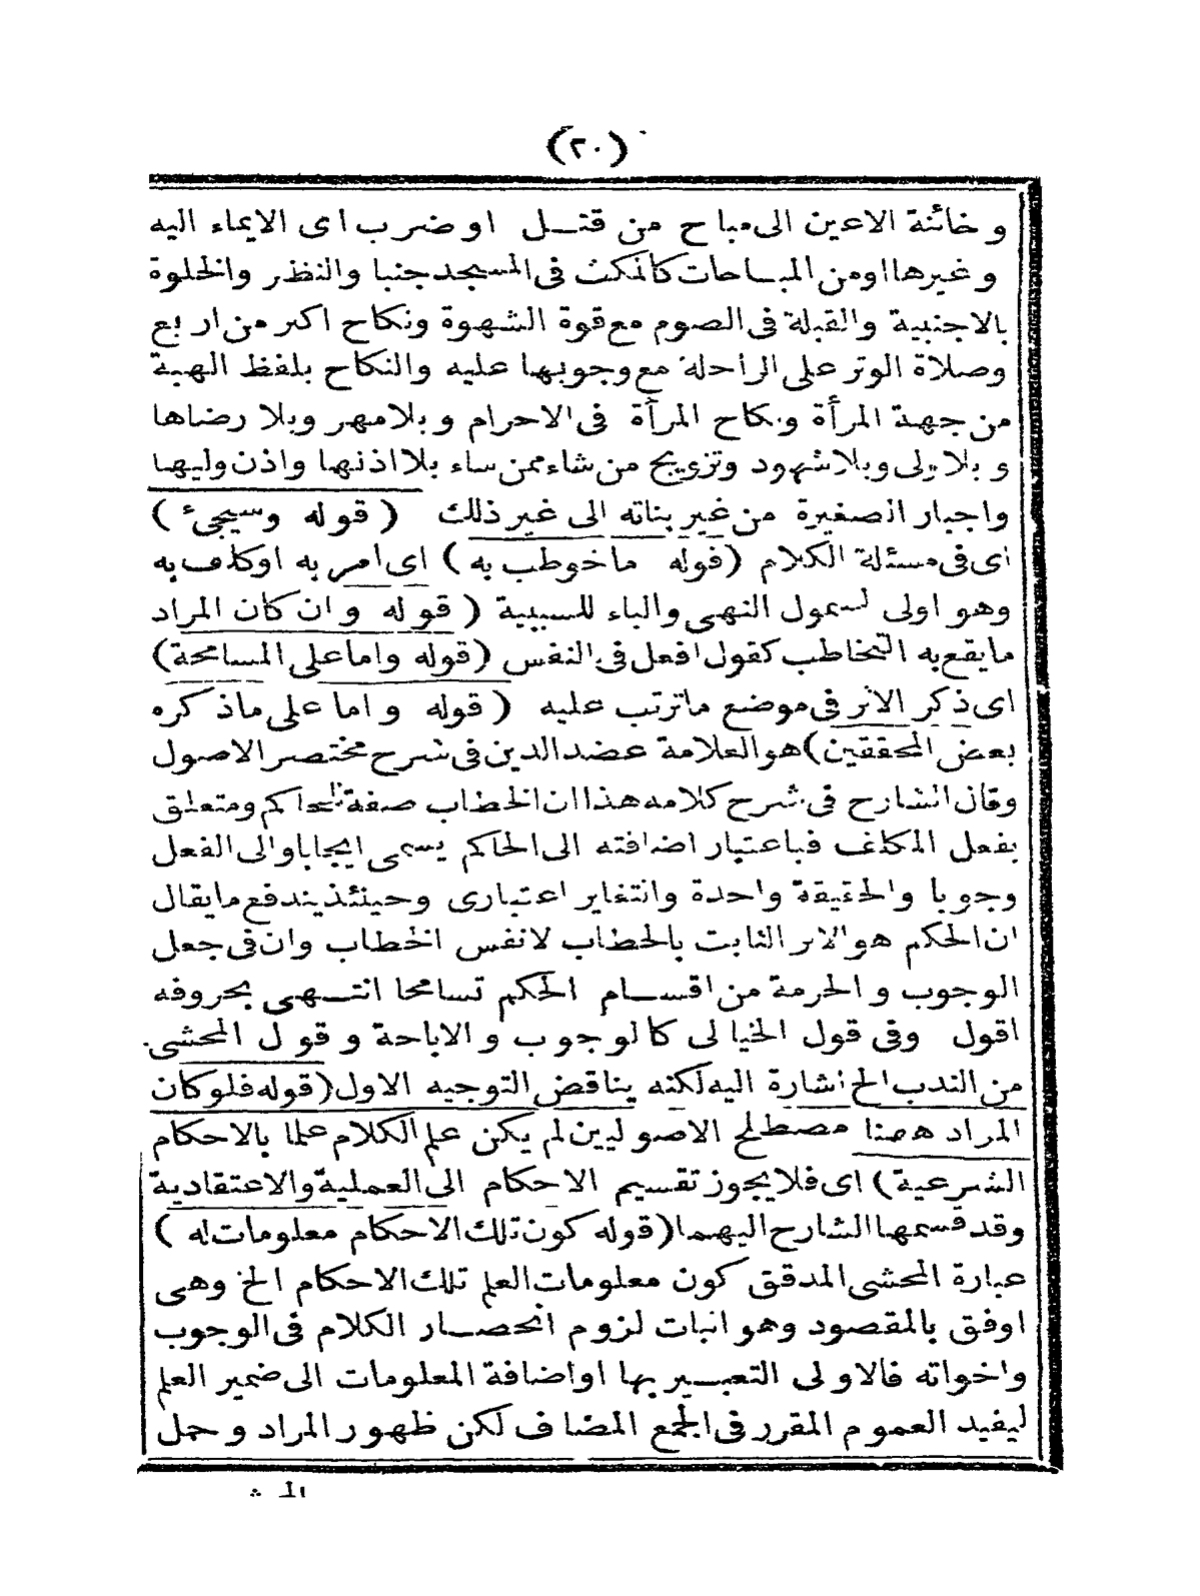 (٢٠)
وخائنة الاعين الى مباح من قتل او ضرب اى الايماء اليه
وغيرها او من المباحات كالمكث فى المسجد جنبا والنظر والخلوة
بالاجنبية والقبلة فى الصوم مع قوة الشهوة ونكاح اكثر من اربع
وصلاة الوتر على الراحلة مع وجوبها عليه والنكاح بلفظ الهبة
من جهة المرأة ونكاح المرأة فى الاحرام وبلا مهر وبلا رضاها
وبلا ولى وبلا شهود وتزويج من شاء ممن شاء بلا اذنها واذن وليها
واجبار الصغيرة من غير بناته الى غير ذلك (قوله وسيجىء)
اى فى مسئلة الكلام (قوله ما خوطب به) اى امر به او كلف به
وهو اولى لشمول النهى والباء للسببية (قوله وان كان المراد
ما يقع به التخاطب كقول افعل فى النفس (قوله واما على المسامحة)
اى ذكر الاثر فى موضع ما ترتب عليه (قوله واما على ما ذكره
بعض المحققين) هو العلامة عضد الدين فى شرح مختصر الاصول
وقال الشارح فى شرح كلامه هذا ان الخطاب صفة للحاكم ومتعلق
بفعل المكلف فباعتبار اضافته الى الحاكم يسمى ايجابا والى الفعل
وجوبا والحقيقة واحدة والتغاير اعتبارى وحينئذ يندفع ما يقال
ان الحكم هو الاثر الثابت بالخطاب لا نفس الخطاب وان فى جعل
الوجوب والحرمة من اقسام الحكم تسامحا انتهى بحروفه
اقول وفى قول الخيالى كالوجوب والاباحة وقول المحشى
من الندب الخ اشارة اليه لكنه يناقض التوجيه الاول (قوله فلو كان
المراد ههنا مصطلح الاصوليين لم يكن علم الكلام علما بالاحكام
الشرعية) اى فلا يجوز تقسيم الاحكام الى العملية والاعتقادية
وقد قسمها الشارح اليهما (قوله كون تلك الاحكام معلومات له)
عبارة المحشى المدقق كون معلومات العلم تلك الاحكام الخ وهى
اوفق بالمقصود وهو اثبات لزوم انحصار الكلام فى الوجوب
واخواته فالاولى التعبير بها او اضافة المعلومات الى ضمير العلم
ليفيد العموم المقرر فى الجمع المضاف لكن ظهور المراد وحمل